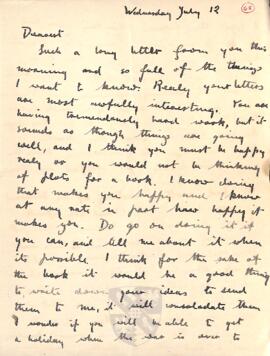 Wednesday July 12
68
Dearest
Such a long letter from you this
morning and so full of the things
I want to know. Really your letters
are most awfully interesting. You are
having tremendously hard work, but it
sounds as though things are going
well, and I think you must be happy
realy or you would not be thinking
of plots for a book. I know doing
that makes you happy and I know
at any rate in part how happy it
makes you. Do go on doing it if
you can, and tell me about it when
its possible. I think for the sake of
the book it would be a good thing
to write down your ideas to send
them to me, it will consolodate them
I wonder if you will be able to get
a holiday when the war is over to